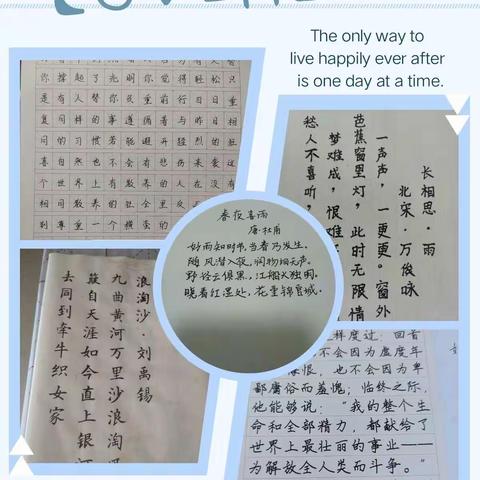 The only way to
live happily ever after
is one day at a time.
你撑起了光明你觉得轻松只
是有人替你负重前行日日重
复同样的事遵循着与昨日相
同的习惯若能避开猛烈的狂
喜自然也不会有悲伤来袭这
个世界上有教养的人在没有
相同教养的社会里
到尊重一个横蛮的
长相思·雨
北宋·万俟咏
一声声，一更更。窗外
芭蕉窗里灯，此时无限情
梦难成，恨难
愁人不喜听，
春夜喜雨
唐·杜甫
好雨知时节，当春乃发生。
随风潜入夜，润物细无声。
野径云俱黑，江船火独明。
晓看红湿处，花重锦官城。
浪淘沙·刘禹锡
九曲黄河万里沙浪淘风
簸自天涯如今直上银河
去同到牵牛织女家
样度过：回首
不会因为虚度年
悔恨，也不会因为卑
鄙庸俗而羞愧；临终之际，
他能够说：“我的整个生
命和全部精力，都献给了
世界上最壮丽的事业——
为解放全人类而斗争。”